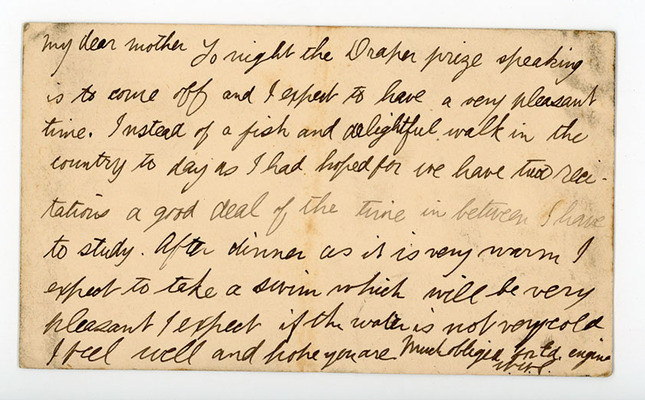 My dear mother To night the Draper prize speaking
is to come off and I expect to have a very pleasant
time. Instead of a fish and delightful walk in the
country to day as I had hoped for we have two reci-
tations a good deal of the time in between I have
to study. After dinner as it is very warm I
expect to take a swim which will be very
pleasant I expect if the water is not very cold
I feel well and hope you are Much obliged for engine